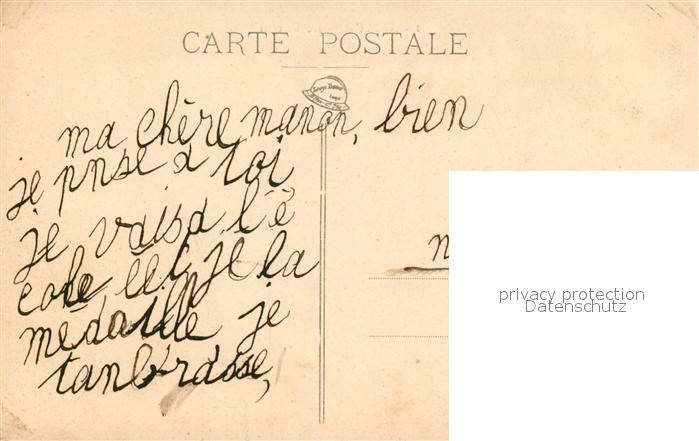 CARTE POSTALE
ma chère manon, bien
je pnse a toi,
je vais a l'é
cole éét je la
médaille je
tanbrasse,
n
privacy protection
Datenschutz